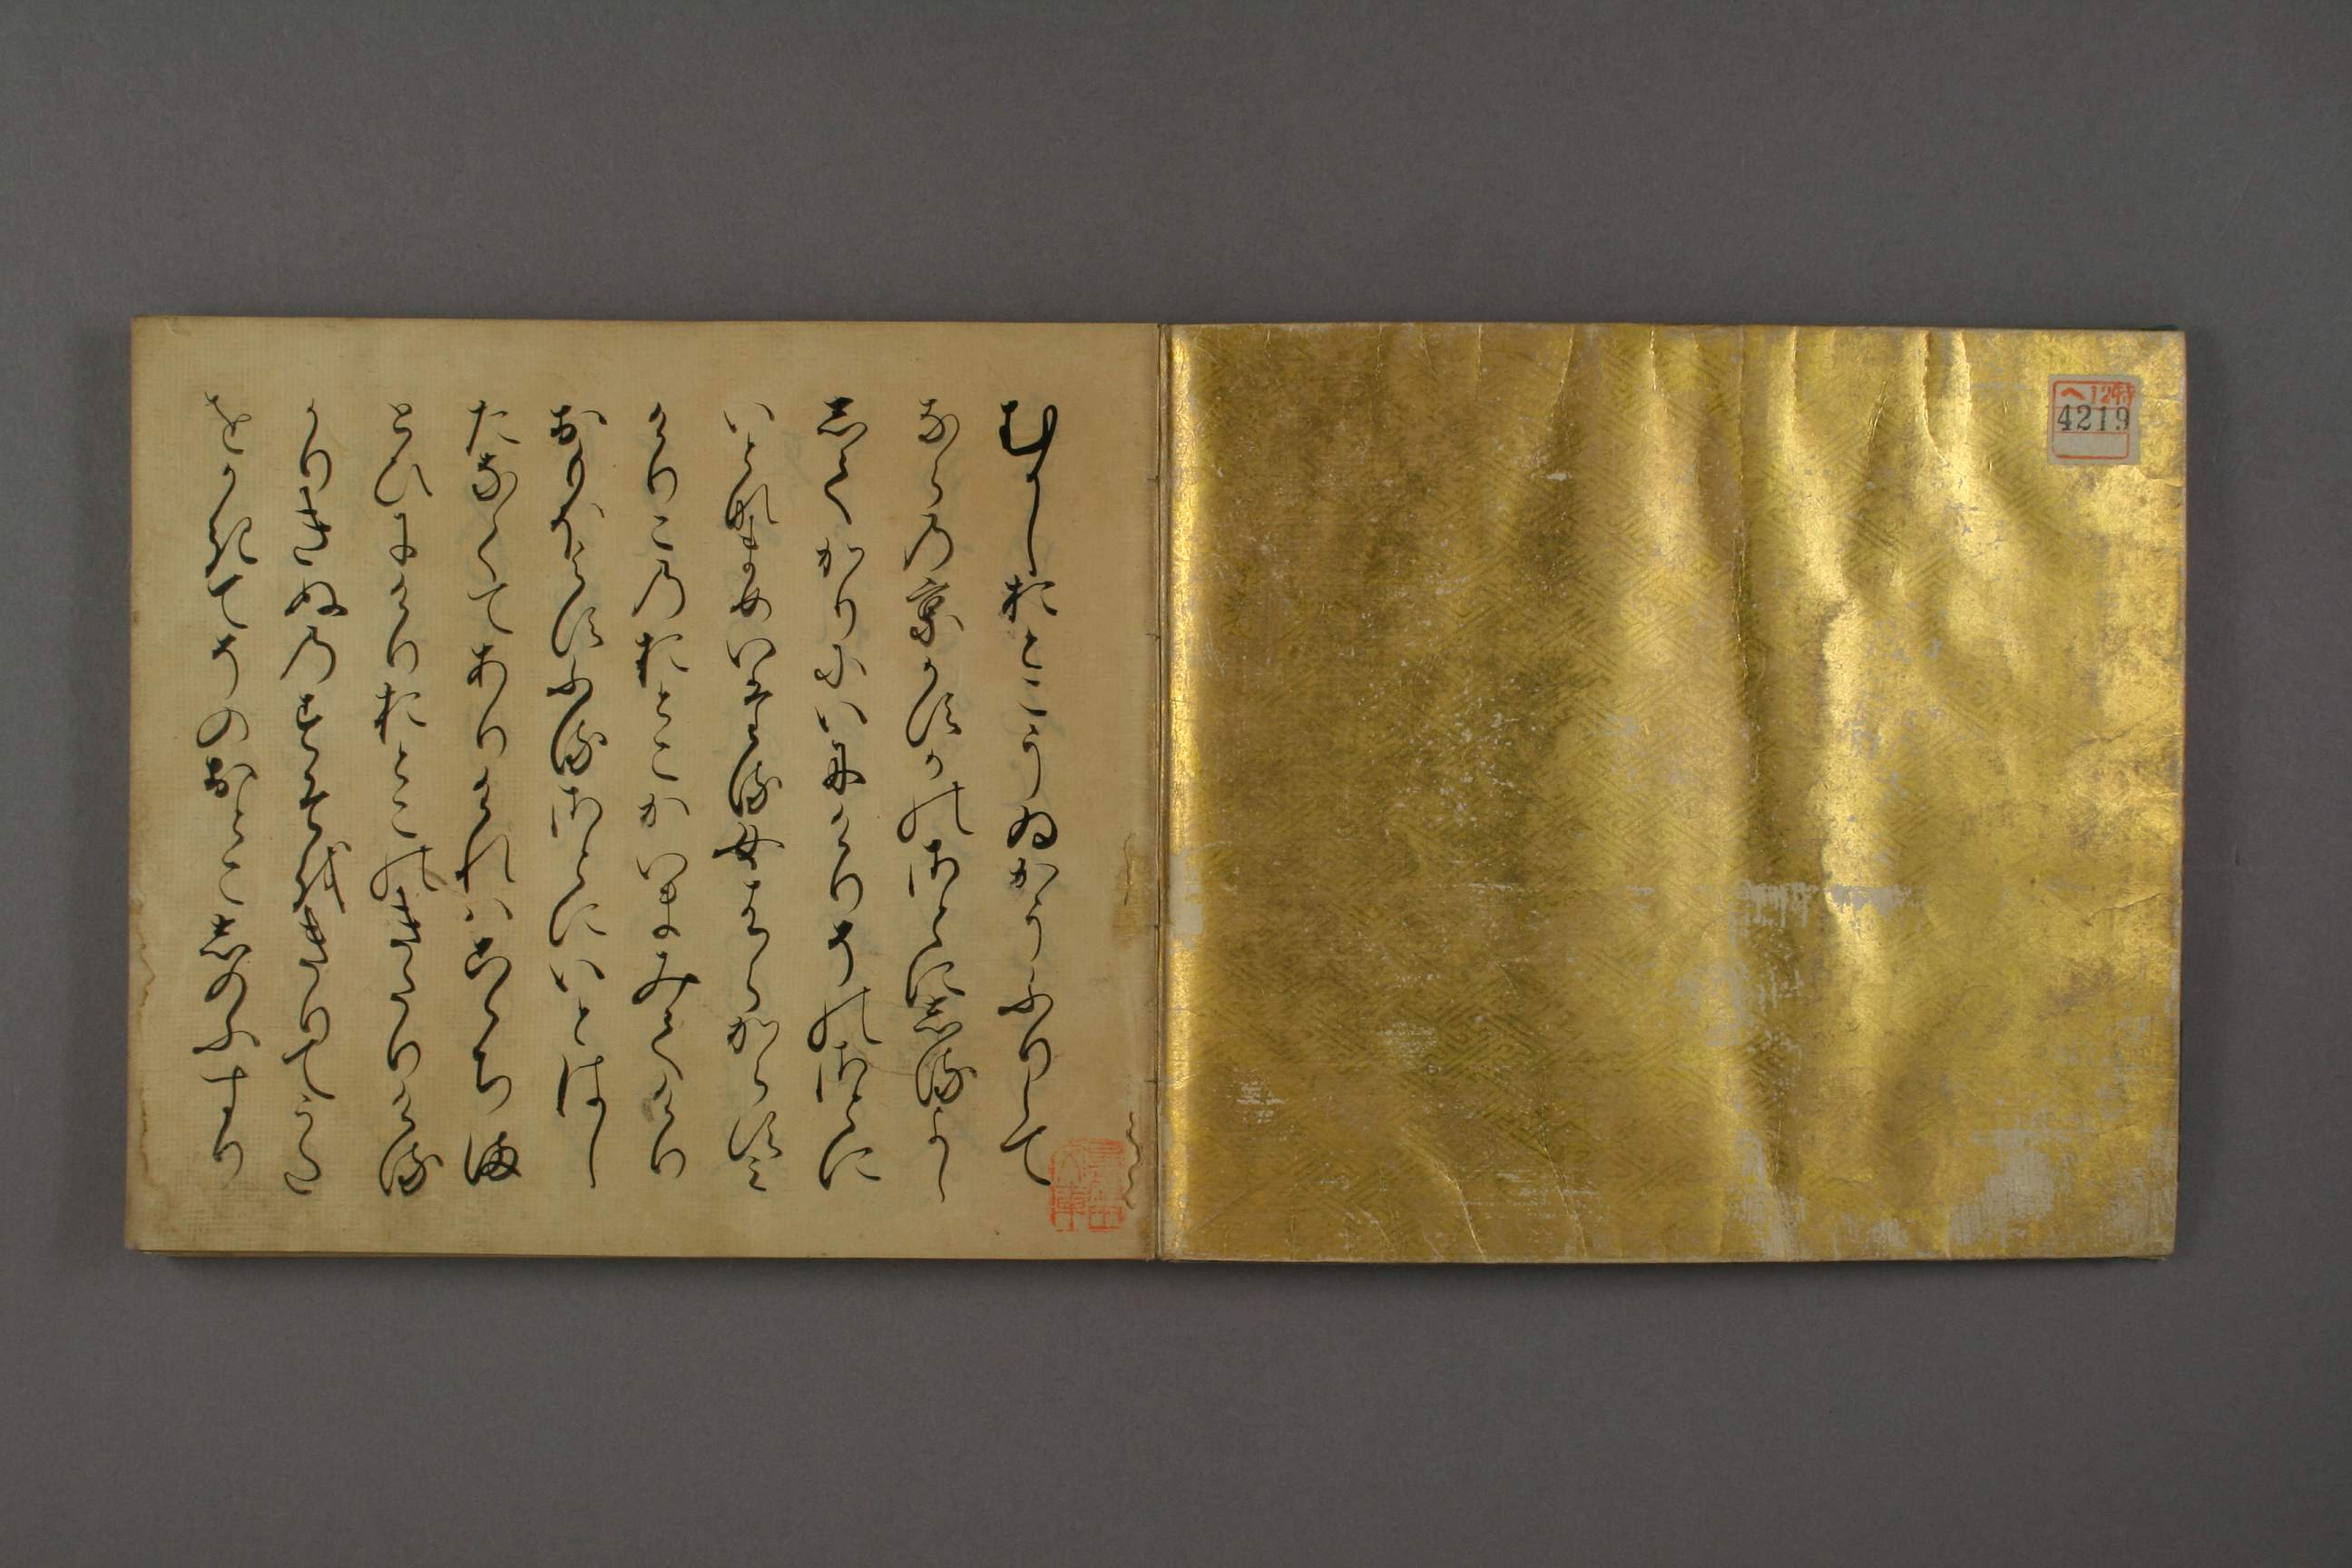 へ12特
4219
むかしおとこうゐかうふりして
ならの京かすかのさとにしるよし
してかりにいにけりそのさとに
いとなまめいたる女はらからすみ
けりこのおとこかいまみてけり
おもほえすふるさとにいとはし
たなくてありけれはこゝちま
とひにけりおとこのきたりける
かりきぬのすそをきりてうた
をかきてそのおとこしのふすり